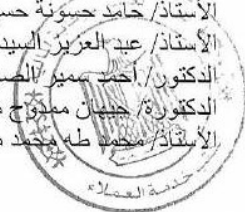 الأستاذ/ حامد حسونة حس
الأستاذ/ عبد العزيز السيد
الدكتور/ أحمد سمير الص
الدكتورة/ جيهان ممدوح
الأستاذ/ محمد طه محمد
خدمة العملاء